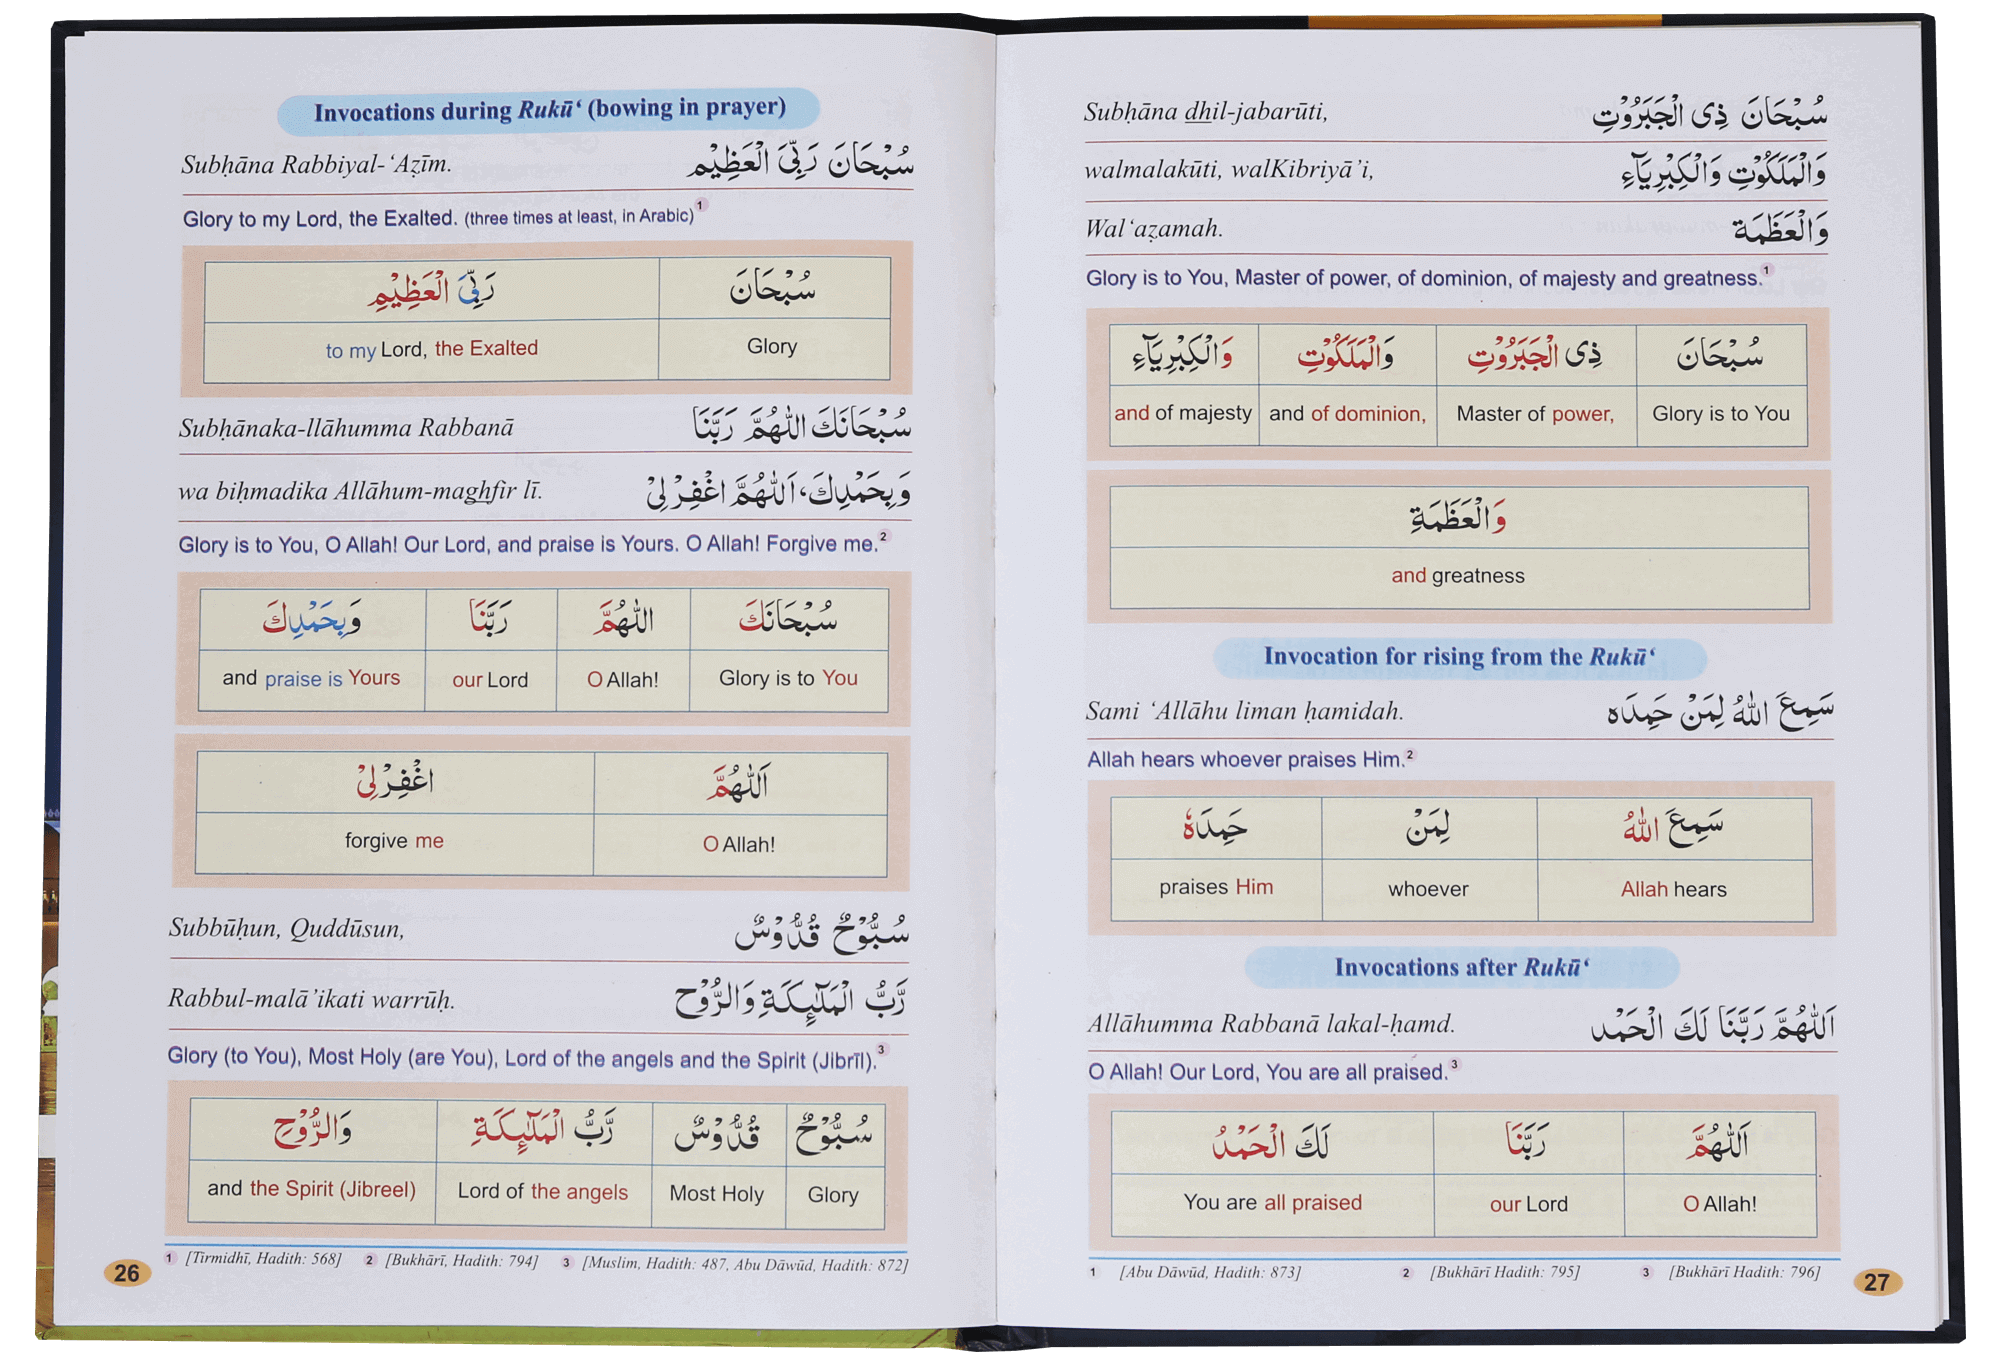 Invocations during Rukū‘ (bowing in prayer)
Subḥāna Rabbiyal-‘Aẓīm. سُبْحَانَ رَبِّىَ الْعَظِيْم
Glory to my Lord, the Exalted. (three times at least, in Arabic)1
سُبْحَانَ رَبِّىَ الْعَظِيْمِ
Glory to my Lord, the Exalted
Subḥānaka-llāhumma Rabbanā سُبْحَانَكَ اللّٰهُمَّ رَبَّنَا
wa biḥmadika Allāhum-maghfir lī. وَبِحَمْدِكَ، اَللّٰهُمَّ اغْفِرْ لِىْ
Glory is to You, O Allah! Our Lord, and praise is Yours. O Allah! Forgive me.2
سُبْحَانَكَ اللّٰهُمَّ رَبَّنَا وَبِحَمْدِكَ
Glory is to You O Allah! our Lord and praise is Yours
اَللّٰهُمَّ اغْفِرْ لِىْ
O Allah! forgive me
Subbūḥun, Quddūsun, سُبُّوْحٌ قُدُّوْسٌ
Rabbul-malā’ikati warrūḥ. رَّبُّ الْمَلٰٓئِكَةِ وَالرُّوْح
Glory (to You), Most Holy (are You), Lord of the angels and the Spirit (Jibrīl).3
سُبُّوْحٌ قُدُّوْسٌ رَّبُّ الْمَلٰٓئِكَةِ وَالرُّوْحِ
Glory Most Holy Lord of the angels and the Spirit (Jibreel)
1 [Tirmidhī, Hadith: 568] 2 [Bukhārī, Hadith: 794] 3 [Muslim, Hadith: 487, Abu Dāwūd, Hadith: 872]
26
Subḥāna dhil-jabarūti, سُبْحَانَ ذِى الْجَبَرُوْتِ
walmalakūti, walKibriyā’i, وَالْمَلَكُوْتِ وَالْكِبْرِيَآءِ
Wal‘aẓamah. وَالْعَظَمَة
Glory is to You, Master of power, of dominion, of majesty and greatness.1
سُبْحَانَ ذِى الْجَبَرُوْتِ وَالْمَلَكُوْتِ وَالْكِبْرِيَآءِ
Glory is to You Master of power, and of dominion, and of majesty
وَالْعَظَمَةِ
and greatness
Invocation for rising from the Rukū‘
Sami ‘Allāhu liman ḥamidah. سَمِعَ اللّٰهُ لِمَنْ حَمِدَه
Allah hears whoever praises Him.2
سَمِعَ اللّٰهُ لِمَنْ حَمِدَهٗ
Allah hears whoever praises Him
Invocations after Rukū‘
Allāhumma Rabbanā lakal-ḥamd. اَللّٰهُمَّ رَبَّنَا لَكَ الْحَمْد
O Allah! Our Lord, You are all praised.3
اَللّٰهُمَّ رَبَّنَا لَكَ الْحَمْدُ
O Allah! our Lord You are all praised
1 [Abu Dāwūd, Hadith: 873] 2 [Bukhārī Hadith: 795] 3 [Bukhārī Hadith: 796]
27